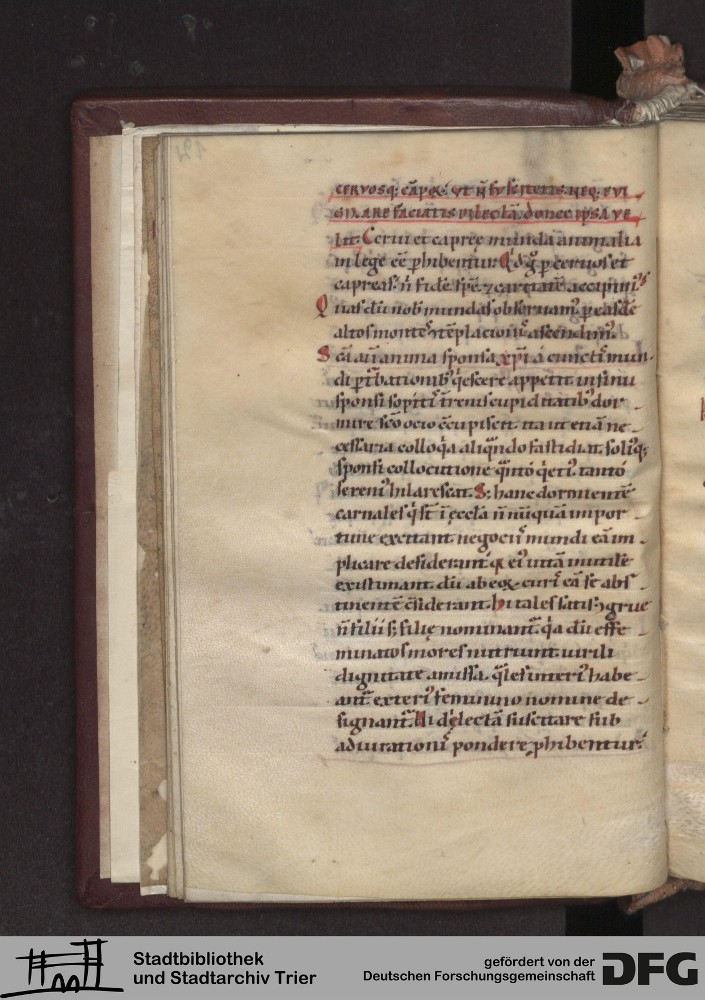 CERVOSQ; CAPQ; UT N̄ SUSCITETIS NEQ; EVI
GILARE FACIATIS DILECTĀ. DONEC IPSA VE
lit. Cerui et capreę munda animalia
in lege eē phibentur. Qd g̊ p ceruos et
capreas. n̄ fidē spē 7 caritatē accipim᷒
Quas dū nob mundas obseruam᷒ p eas de
altos montes tēplacionū ascendim᷒.
Scā aū anima sponsa xp̄i a cunctis mun
di ptbationib᷒ q̇escere appetit. in sinu
sponsi sopitis treniscupiditatib᷒ dor
mire scō ocio
cessaria colloq̇a aliq̇ndo fastidiat. soliq;
sponsi collocutione q̇nto q̇eti᷒ tanto
sereni᷒ hilarescat. S; hanc dormientē
carnales q̇ st ī ęccła n̄ nūquā impor
tune excitant. negociis mundi eā im
plicare desiderant. q ei᷒ uitā inutilē
existimant. dū ab eoꝝ curis eā se abs
tinentē ɔ̄siderant. Hi tales satis ɔgrue
n̄ filii s; filię nominant. q̇a dū effe
minatos mores nutriunt. uirili
dignitate amissa. q̇les interi᷒ habe
ant. exteri᷒ feminino nomine de
signant. Hi dilectā suscitare sub
adiurationis pondere phibentur.
Stadtbibliothek
und Stadtarchiv Trier
gefördert von der
Deutschen Forschungsgemeinschaft
DFG